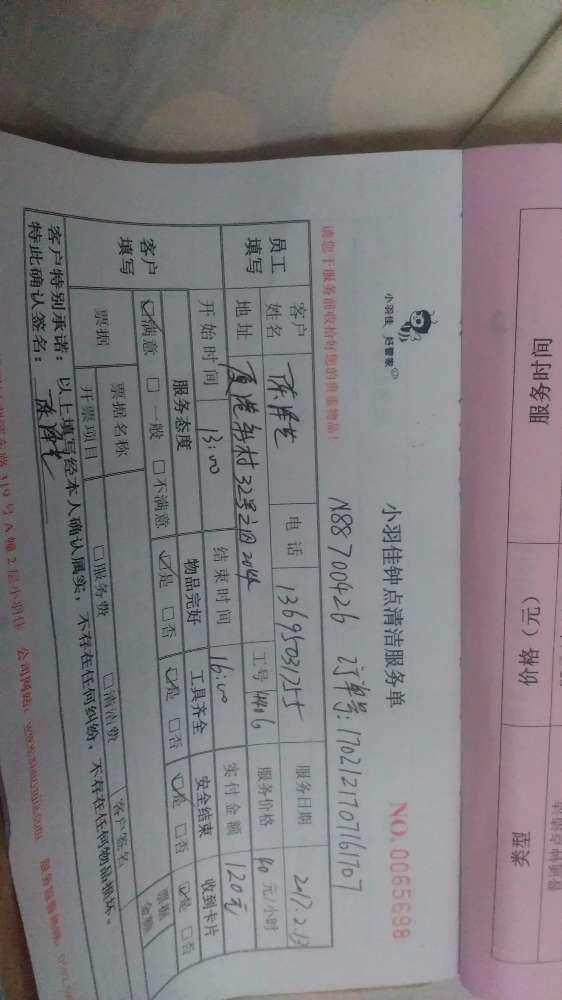 小羽佳 好管家
小羽佳钟点清洁服务单
NO. 0055698
N88700426 订单号:1702121707161707
请您于服务前收拾好您的贵重物品!
员工填写
客户姓名 电话 13695031755 服务日期 2017.2.13
地址 厦港新村32号之四204 工号 4406 服务价格 40元/小时
开始时间 13:00 结束时间 16:00 实付金额 120元
客户填写
服务态度 物品完好 工具齐全 安全结束 收到卡片
☑满意 □一般 □不满意 ☑是 □否 ☑是 □否 ☑是 □否 ☑是 □否
票据 票据名称 □服务费 □清洁费 客户签名 票据金额
开票项目
客户特别承诺:以上填写经本人确认属实,不存在任何纠纷,不存在任何物品损坏。
特此确认签名:
319号A幢2层小羽佳 公司网站:
服务时间 价格(元) 类型